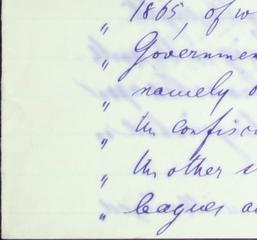 „ 1865, of w
„ Governmen
„ namely o
„ the confisc
„ the other s
„ leagues a